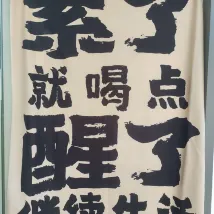 累了
就喝点
醒了
继续生活